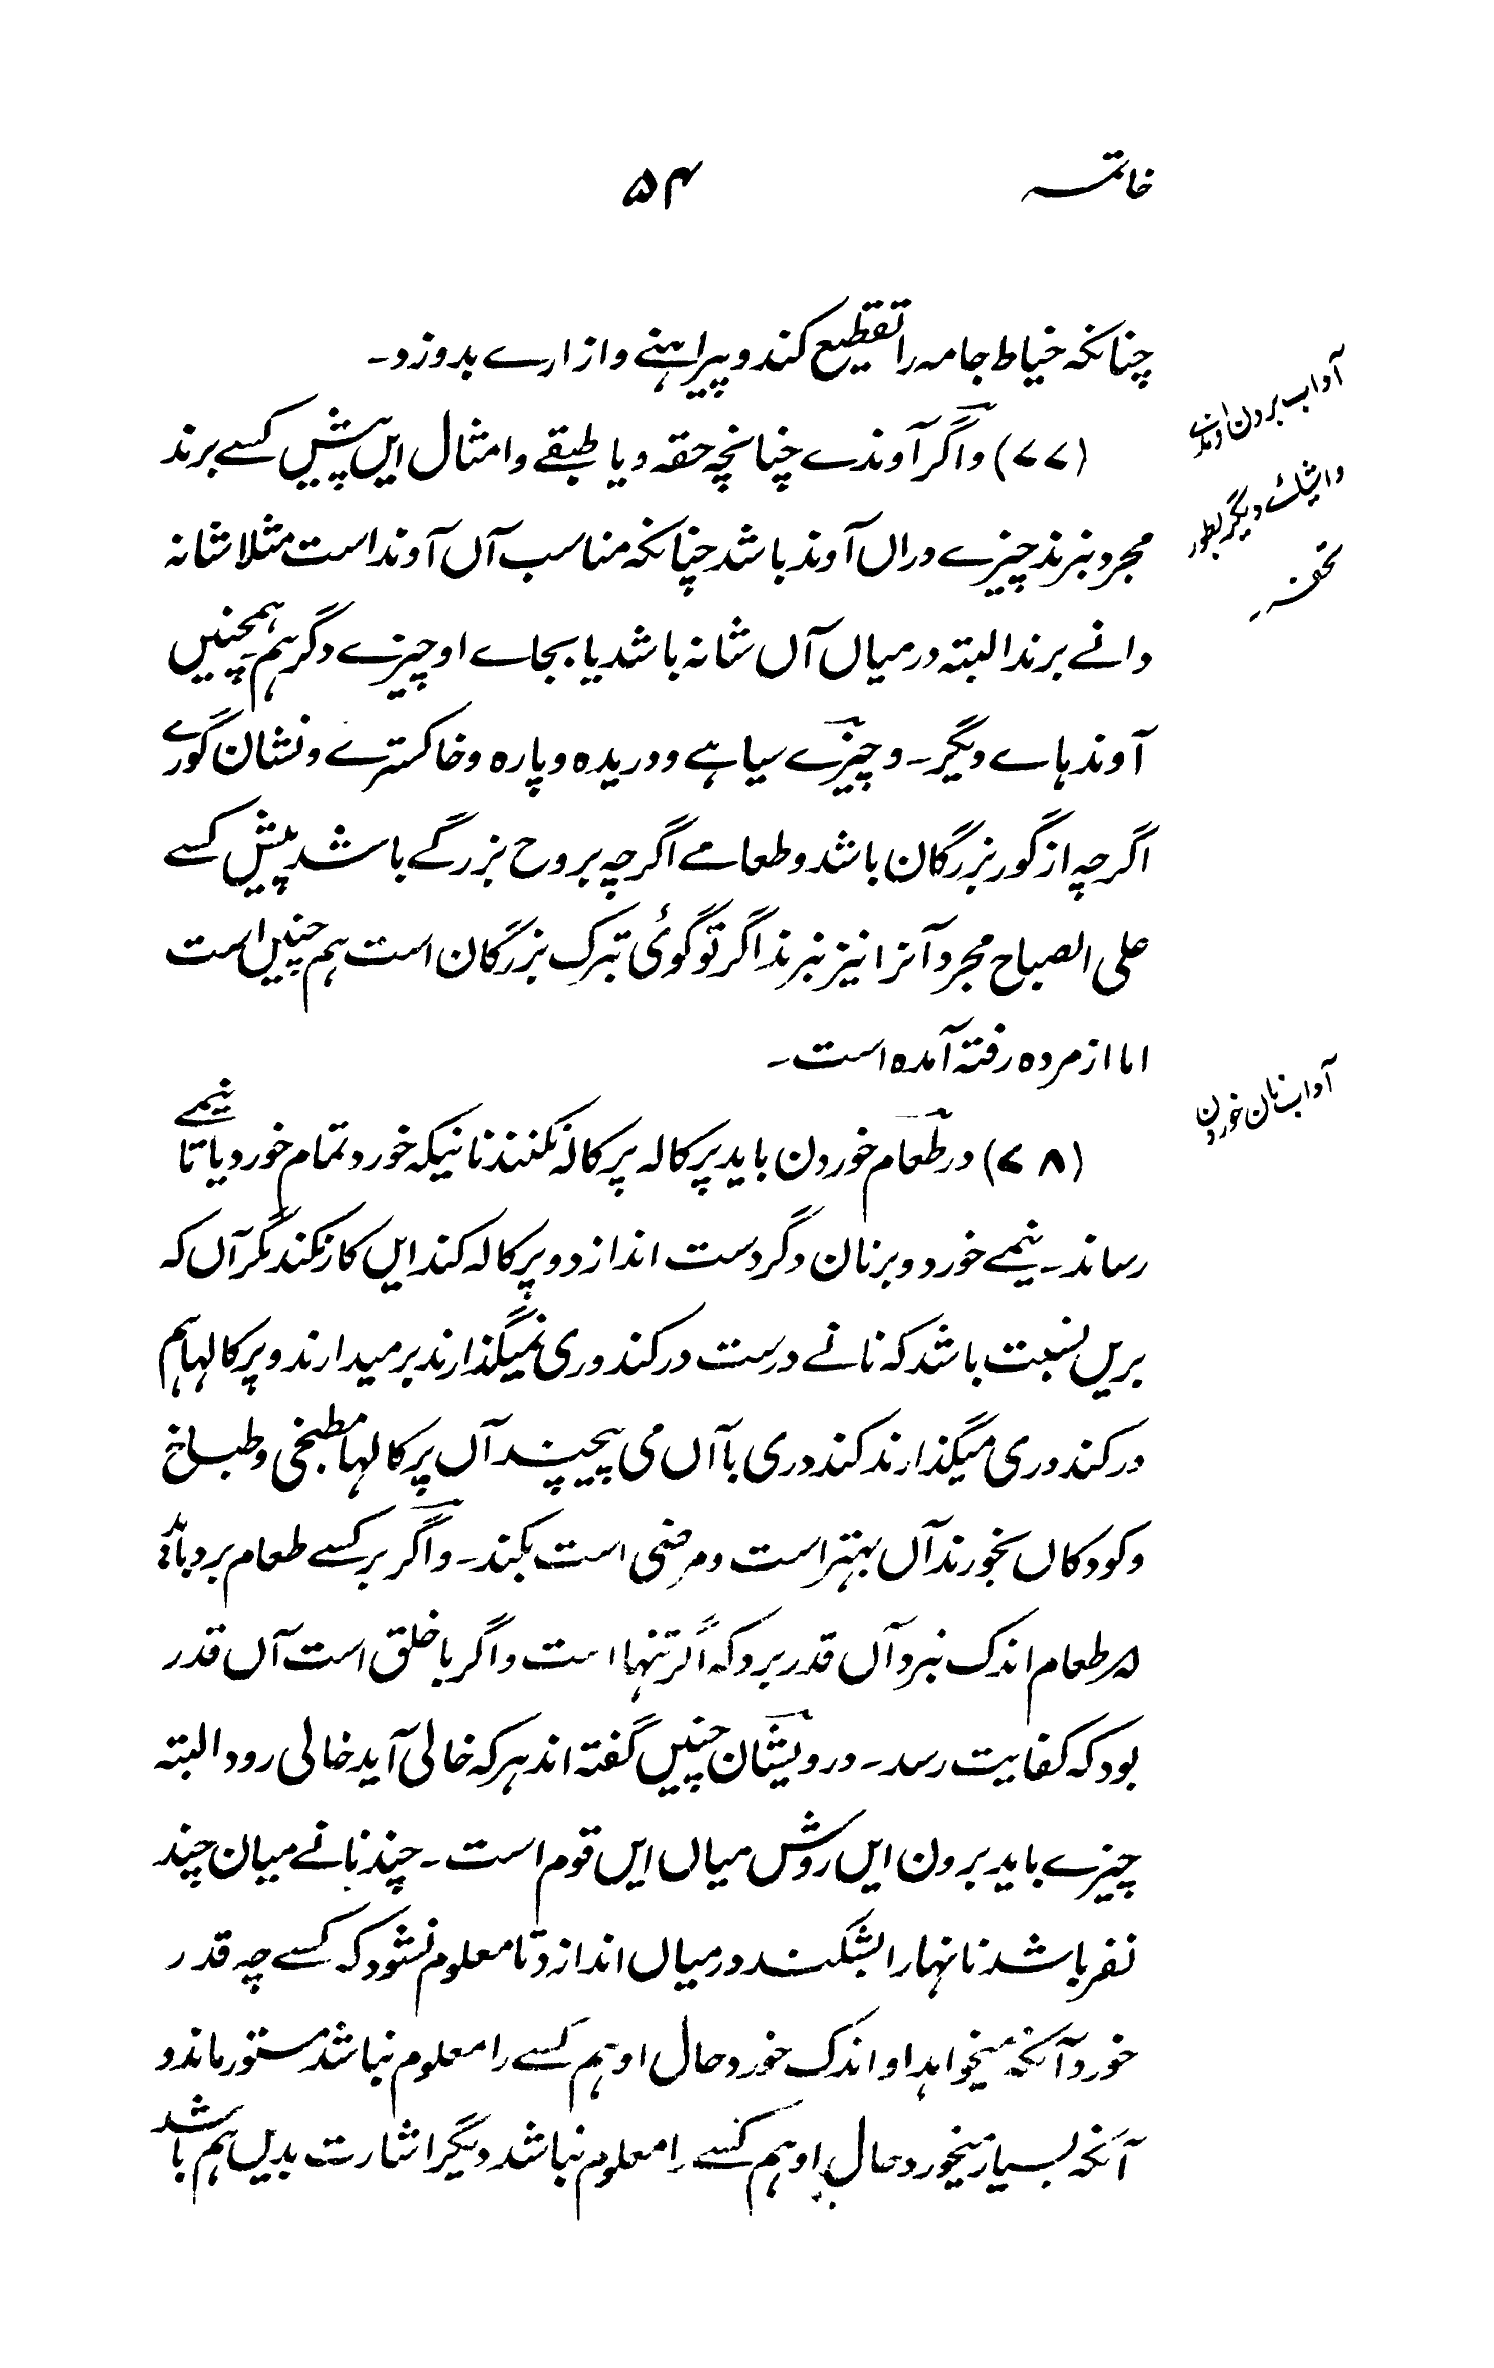 خاتمہ ۵۴
چنانکہ خیاط جامہ را تقطیع کند و پیراہنے و ازارے بدوزد۔
(۷۷) و اگر آوندے چنانچہ حقہ و یا طبقے و امثال ایں پیش کسے برند
مجرد نبرند چیزے دراں آوند باشد چنانکہ مناسب آں آوند است مثلا شانہ
دانے برند البتہ درمیاں آں شانہ باشد یا بجاے او چیزے دگر ہم ہمچنیں
آوندہاے دیگر۔ و چیزے سیاہے و دریدہ و پارہ و خاکسترے و نشان گورے
اگرچہ از گور بزرگان باشد و طعامے اگرچہ بروح بزرگے باشد پیش کسے
علی الصباح مجرد آنرا نیز نبرند اگر تو گوئی تبرک بزرگان است ہم چنیں است
اما از مردہ رفتہ آمدہ است۔
(۷۸) در طعام خوردن باید پرکالہ پرکالہ نکنند نانیکہ خورد تمام خورد یا تا نیمے
رساند۔ نیمے خورد و بر نان دگر دست اندازد و پرکالہ کند ایں کار نکند مگر آں کہ
بریں نسبت باشد کہ نانے درست در کندوری نمیگذارند بر میدارند و پرکالہا ہم
در کندوری میگذارند کندوری با آں می پیچیند آں پرکالہا مطبخی و طباخ
و کودکاں بخورند آں بہتر است و مرضی است بکند۔ و اگر بر کسے طعام برد باید
کہ طعام اندک نبرد آں قدر برد کہ اگر تنہا است و اگر با خلق است آں قدر
بود کہ کفایت رسد۔ درویشان چنیں گفتہ اند ہر کہ خالی آید خالی رود البتہ
چیزے باید برون ایں روش میاں ایں قوم است۔ چند نانے میان چند
نفر باشد نانہا را بشکند درمیاں اندازد تا معلوم نشود کہ کسے چہ قدر
خورد آنکہ میخواہد او اندک خورد حال او ہم کسے را معلوم نباشد مستور ماند و
آنکہ بسیار میخورد حال او ہم کسے را معلوم نباشد دیگر اشارت بدیں ہم باشد
آداب بردن آوندے
و اشیائے دیگر بطور
تحفہ
آداب نان خوردن